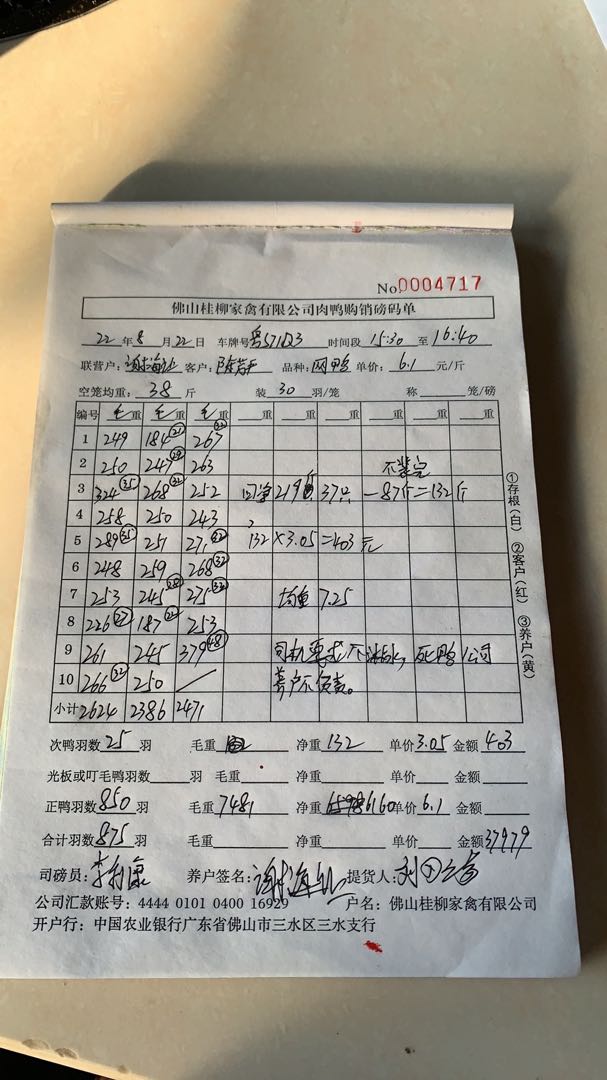 No.0004717
佛山桂柳家禽有限公司肉鸭购销磅码单
22年8月22日 车牌号 571Q3 时间段15:30至16:40
联营户:谢海 客户: 品种:网鸭 单价:6.1元/斤
空笼均重:38斤 装30羽/笼 称 笼/磅
编号 毛重 毛重 毛重 重 重 重 重 重 重
1 249 184(21) 267(32)
2 250 247(29) 263 不装完
3 324(35) 268(32) 252 219 37只 -87斤=132斤
4 258 250 243
5 289(35) 251 271(32) 132×3.05=403元
6 248 259 268(32)
7 253 245(28) 275(32) 均重 7.25
8 226(27) 187(22) 253
9 261 245 379(48) 司机要求不 死鸭公司
10 266(32) 250 / 养户不负责。
小计 2624 2386 2471
次鸭羽数25羽 毛重 净重132 单价3.05 金额403
光板或叮毛鸭羽数 羽 毛重 净重 单价 金额
正鸭羽数850羽 毛重7481 净重6160 单价6.1 金额
合计羽数875羽 毛重 净重 单价 金额37979
司磅员: 养户签名:谢海 提货人:
公司汇款账号:4444 0101 0400 16929 户名:佛山桂柳家禽有限公司
开户行:中国农业银行广东省佛山市三水区三水支行
①存根(白) ②客户(红) ③养户(黄)